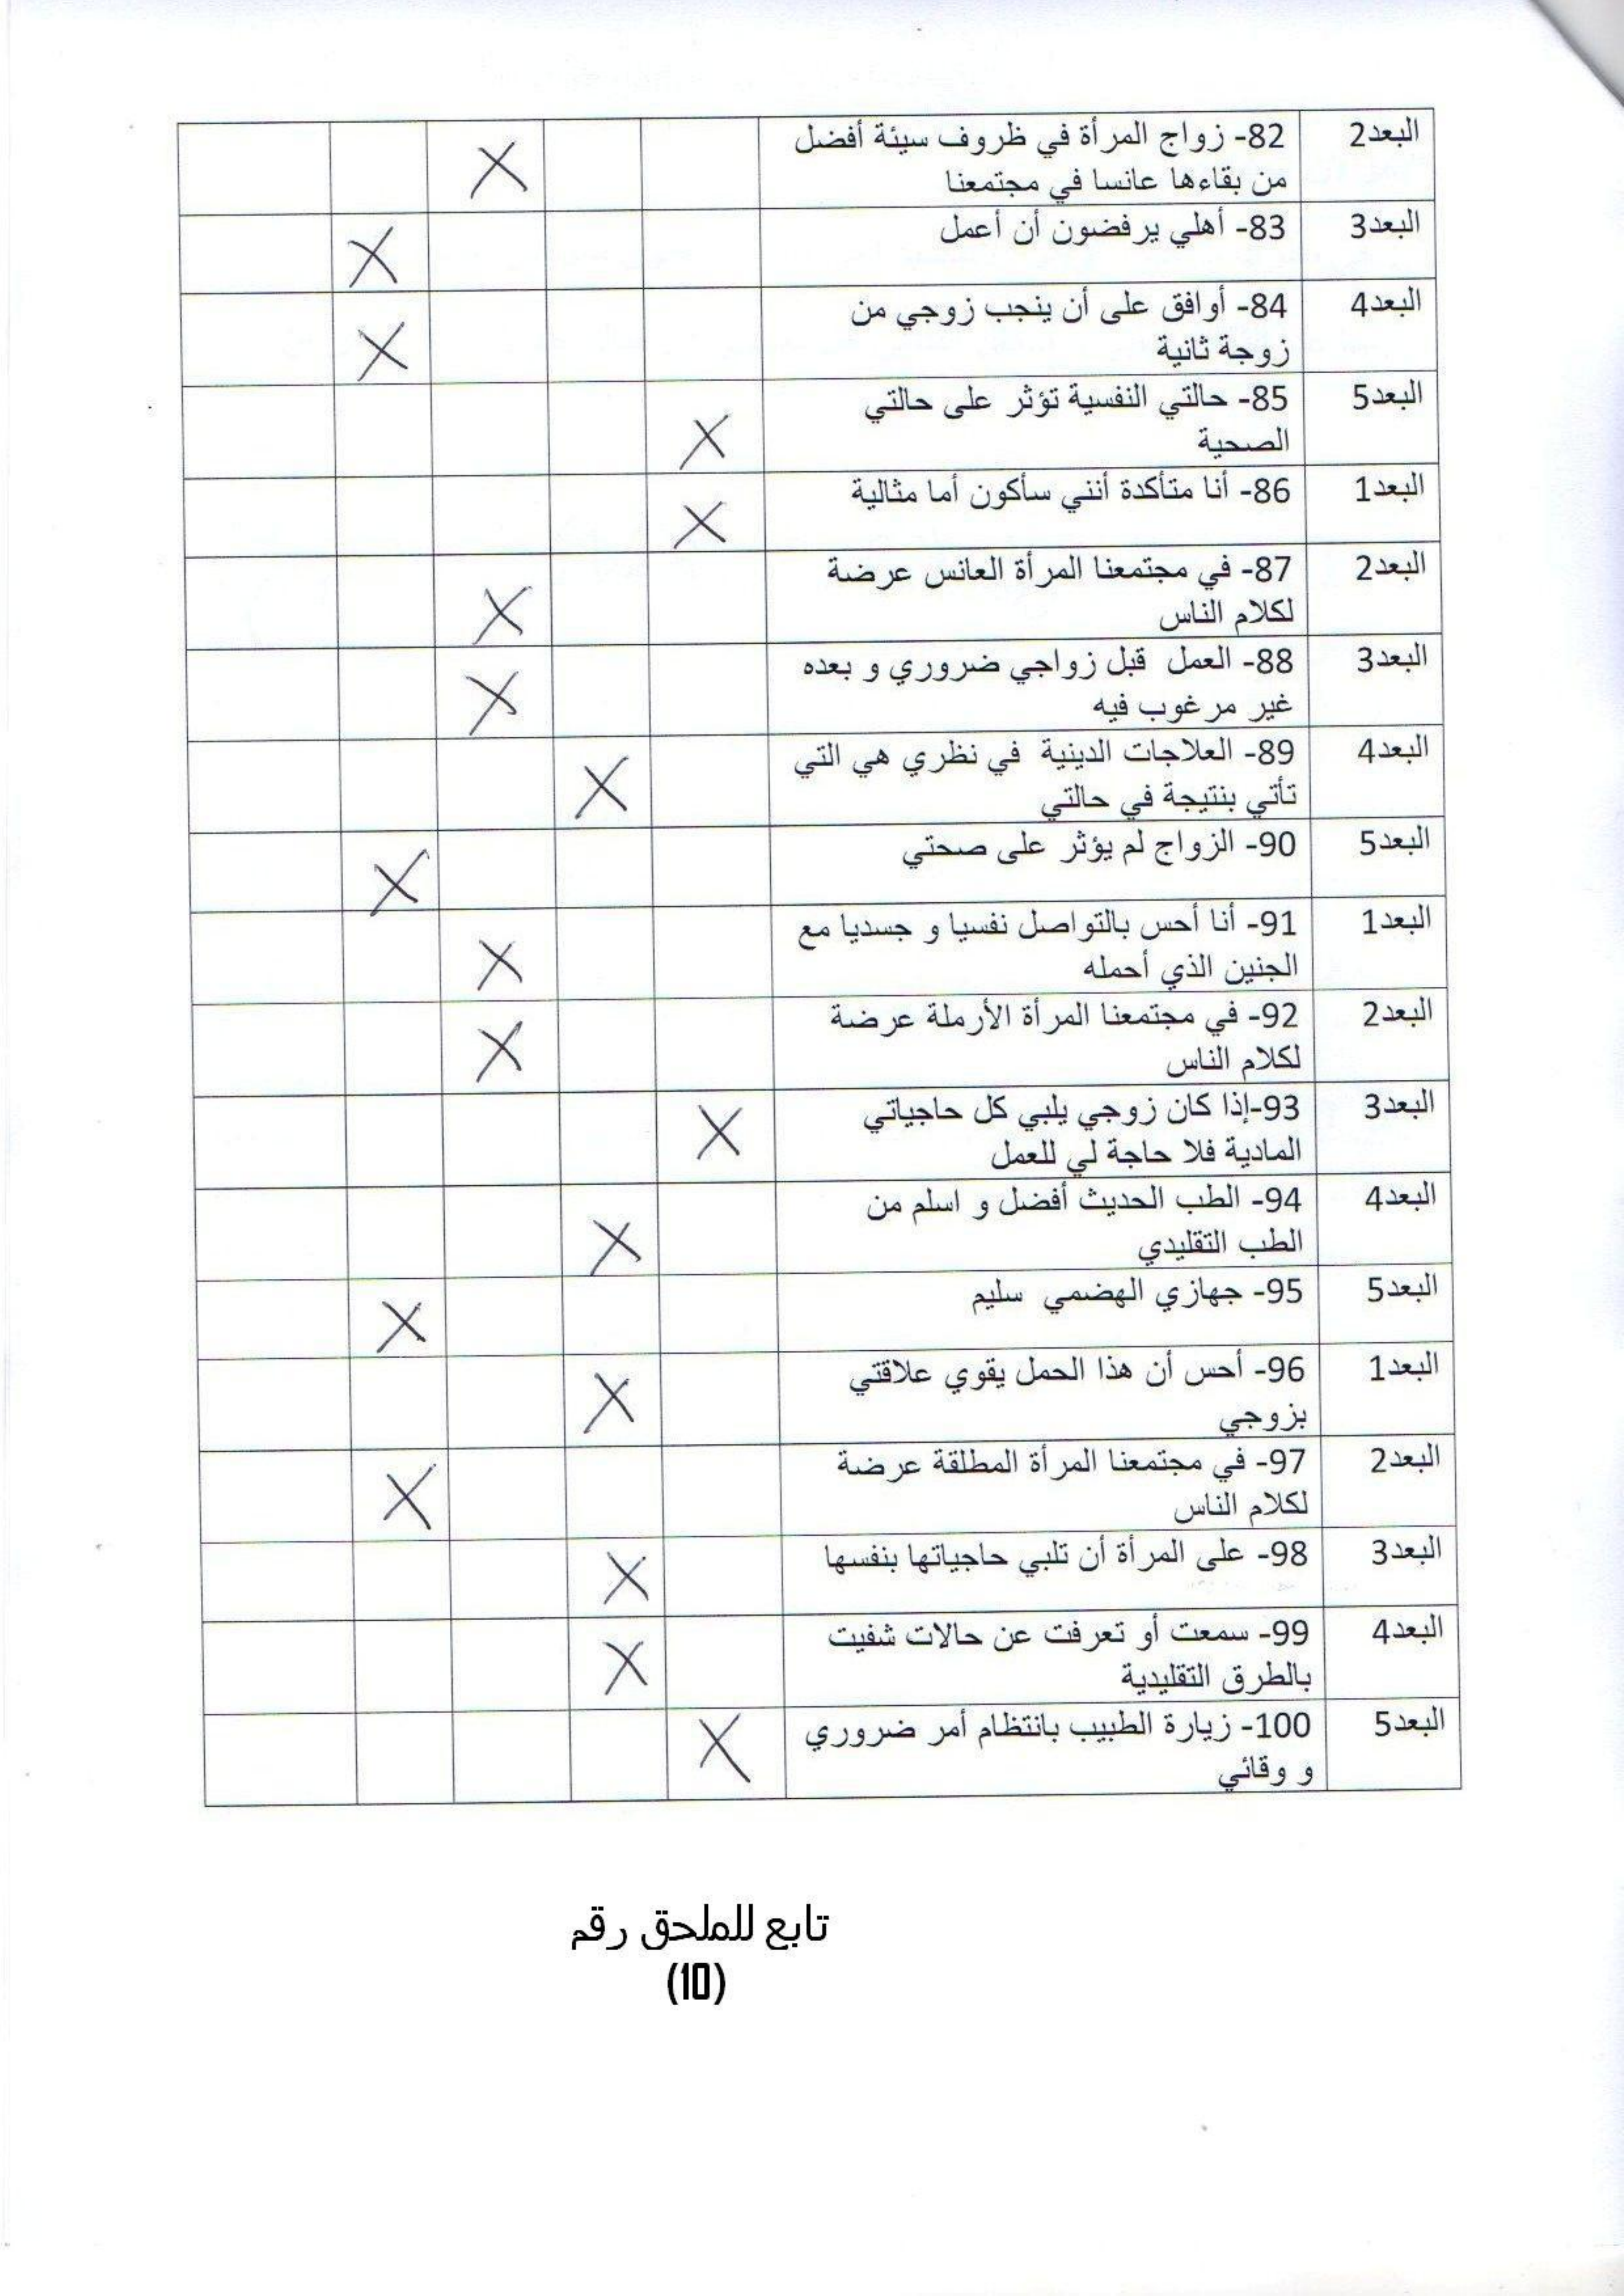 البعد2 82- زواج المرأة في ظروف سيئة أفضل
من بقاءها عانسا في مجتمعنا X
البعد3 83- أهلي يرفضون أن أعمل X
البعد4 84- أوافق على أن ينجب زوجي من
زوجة ثانية X
البعد5 85- حالتي النفسية تؤثر على حالتي
الصحية X
البعد1 86- أنا متأكدة أنني سأكون أما مثالية X
البعد2 87- في مجتمعنا المرأة العانس عرضة
لكلام الناس X
البعد3 88- العمل قبل زواجي ضروري و بعده
غير مرغوب فيه X
البعد4 89- العلاجات الدينية في نظري هي التي
تأتي بنتيجة في حالتي X
البعد5 90- الزواج لم يؤثر على صحتي X
البعد1 91- أنا أحس بالتواصل نفسيا و جسديا مع
الجنين الذي أحمله X
البعد2 92- في مجتمعنا المرأة الأرملة عرضة
لكلام الناس X
البعد3 93-إذا كان زوجي يلبي كل حاجياتي
المادية فلا حاجة لي للعمل X
البعد4 94- الطب الحديث أفضل و اسلم من
الطب التقليدي X
البعد5 95- جهازي الهضمي سليم X
البعد1 96- أحس أن هذا الحمل يقوي علاقتي
بزوجي X
البعد2 97- في مجتمعنا المرأة المطلقة عرضة
لكلام الناس X
البعد3 98- على المرأة أن تلبي حاجياتها بنفسها X
البعد4 99- سمعت أو تعرفت عن حالات شفيت
بالطرق التقليدية X
البعد5 100- زيارة الطبيب بانتظام أمر ضروري
و وقائي X
تابع للملحق رقم
(10)